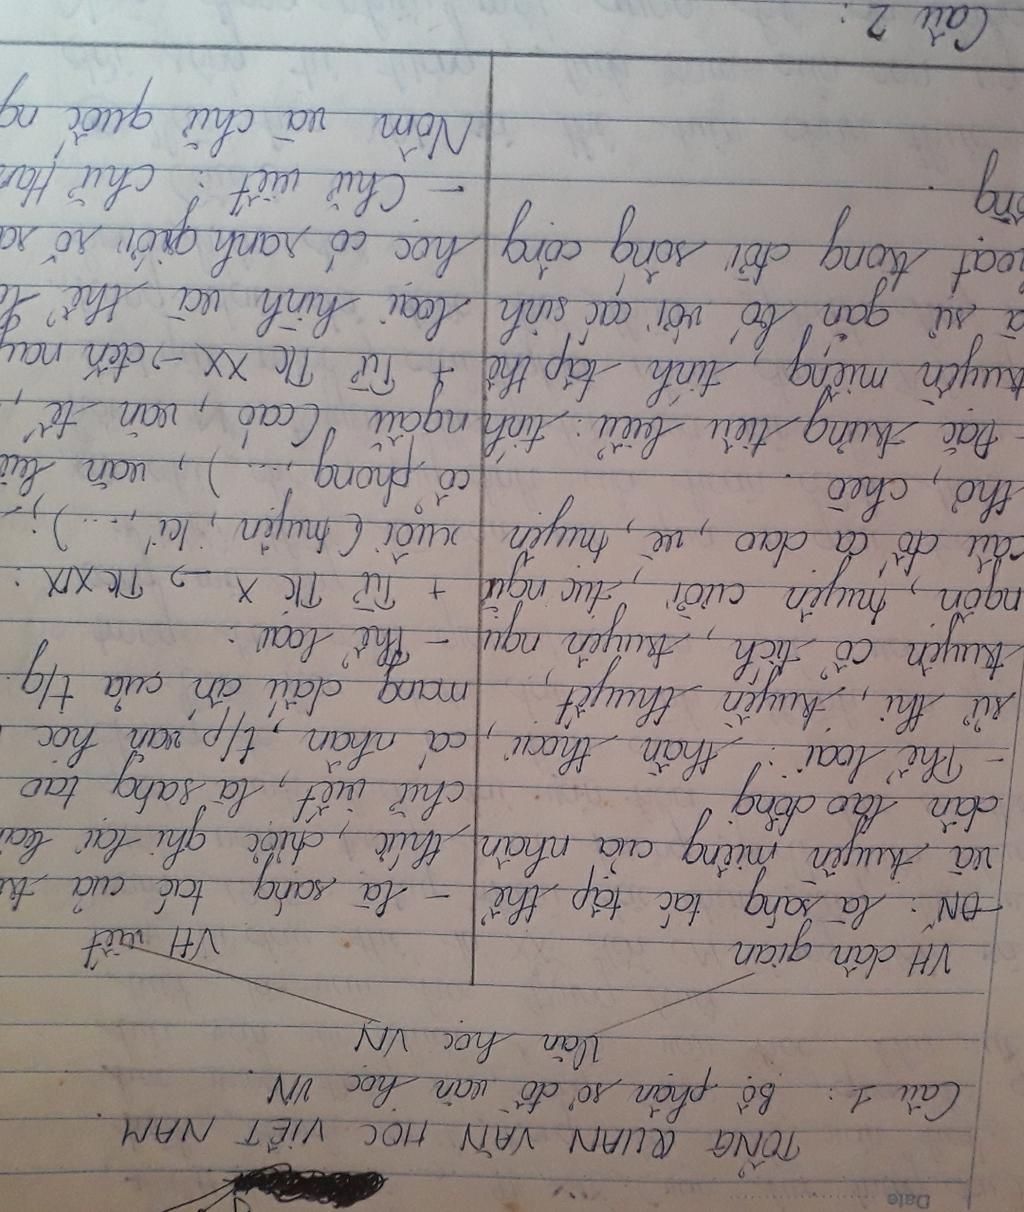 Date
TỔNG QUAN VĂN HỌC VIỆT NAM
Câu 1 : Bộ phận sơ đồ văn học VN
Văn học VN
VH dân gian
ĐN : là sáng tác tập thể
và truyền miệng của nhân
dân lao động
- Thể loại : thần thoại,
sử thi, truyền thuyết,
truyện cổ tích, truyện ngụ
ngôn, truyện cười, tục ngữ
câu đố ca dao, vè, truyện
thơ, chèo
- Đặc trưng tiêu biểu : tính
truyền miệng, tính tập thể
và sự gắn bó với các sinh
hoạt trong đời sống cộng
đồng
VH viết
- là sáng tác của tr
thức, được ghi lại bằn
chữ viết, là sáng tạo
cá nhân, t/p văn học
mang dấu ấn của t/g.
- Thể loại :
+ Từ TK X → TK XIX :
xuôi (truyện, kí, ...) ;
cổ phong, ...), văn biề
ngẫu (cáo, văn tế,
+ Từ TK XX → đến nay
loại hình và thể lo
học có ranh giới rõ rà
- Chữ viết : chữ Hán
Nôm và chữ quốc ng
Câu 2 :